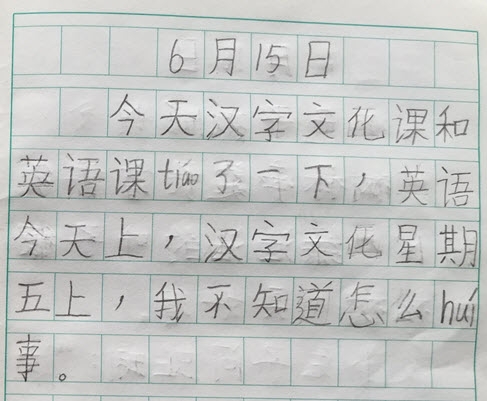 6月15日
今天汉字文化课和
英语课tiáo了一下，英语
今天上，汉字文化星期
五上，我不知道怎么huí
事。